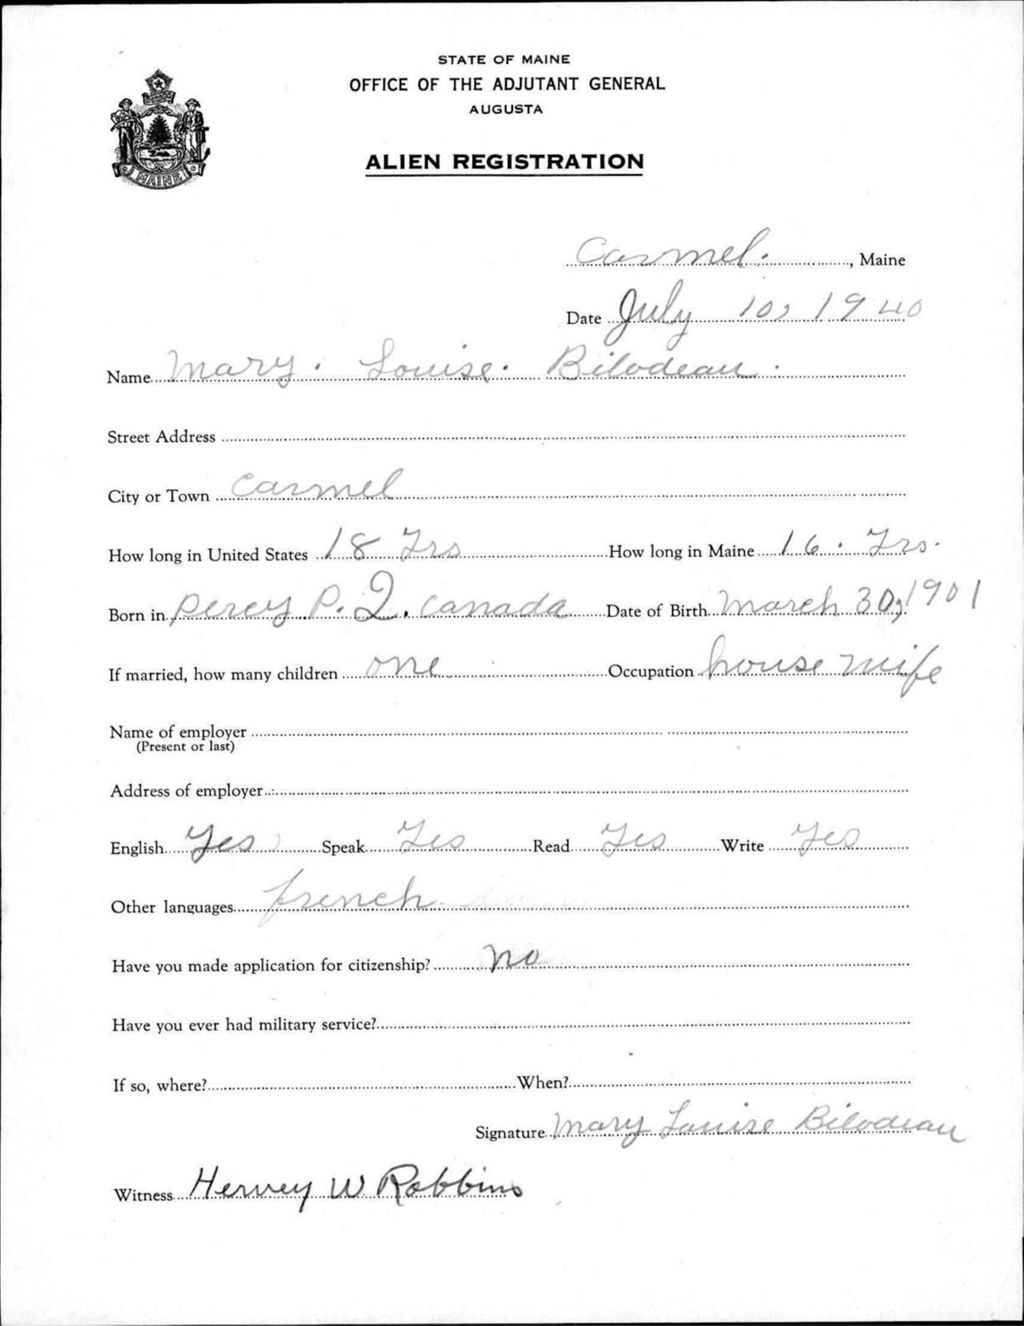 STATE OF MAINE
OFFICE OF THE ADJUTANT GENERAL
AUGUSTA
ALIEN REGISTRATION
MAINE
Carmel. , Maine
Date July 10, 1940
Name Mary. Louise. Bilodeau.
Street Address
City or Town Carmel
How long in United States 18 Yrs How long in Maine 16. Yrs.
Born in Percy P. Q. Canada Date of Birth March 30, 1901
If married, how many children one Occupation house wife
Name of employer
(Present or last)
Address of employer
English Yes Speak Yes Read Yes Write Yes
Other languages french
Have you made application for citizenship? no
Have you ever had military service?
If so, where? When?
Signature Mary Louise Bilodeau
Witness Hervey W Robbins